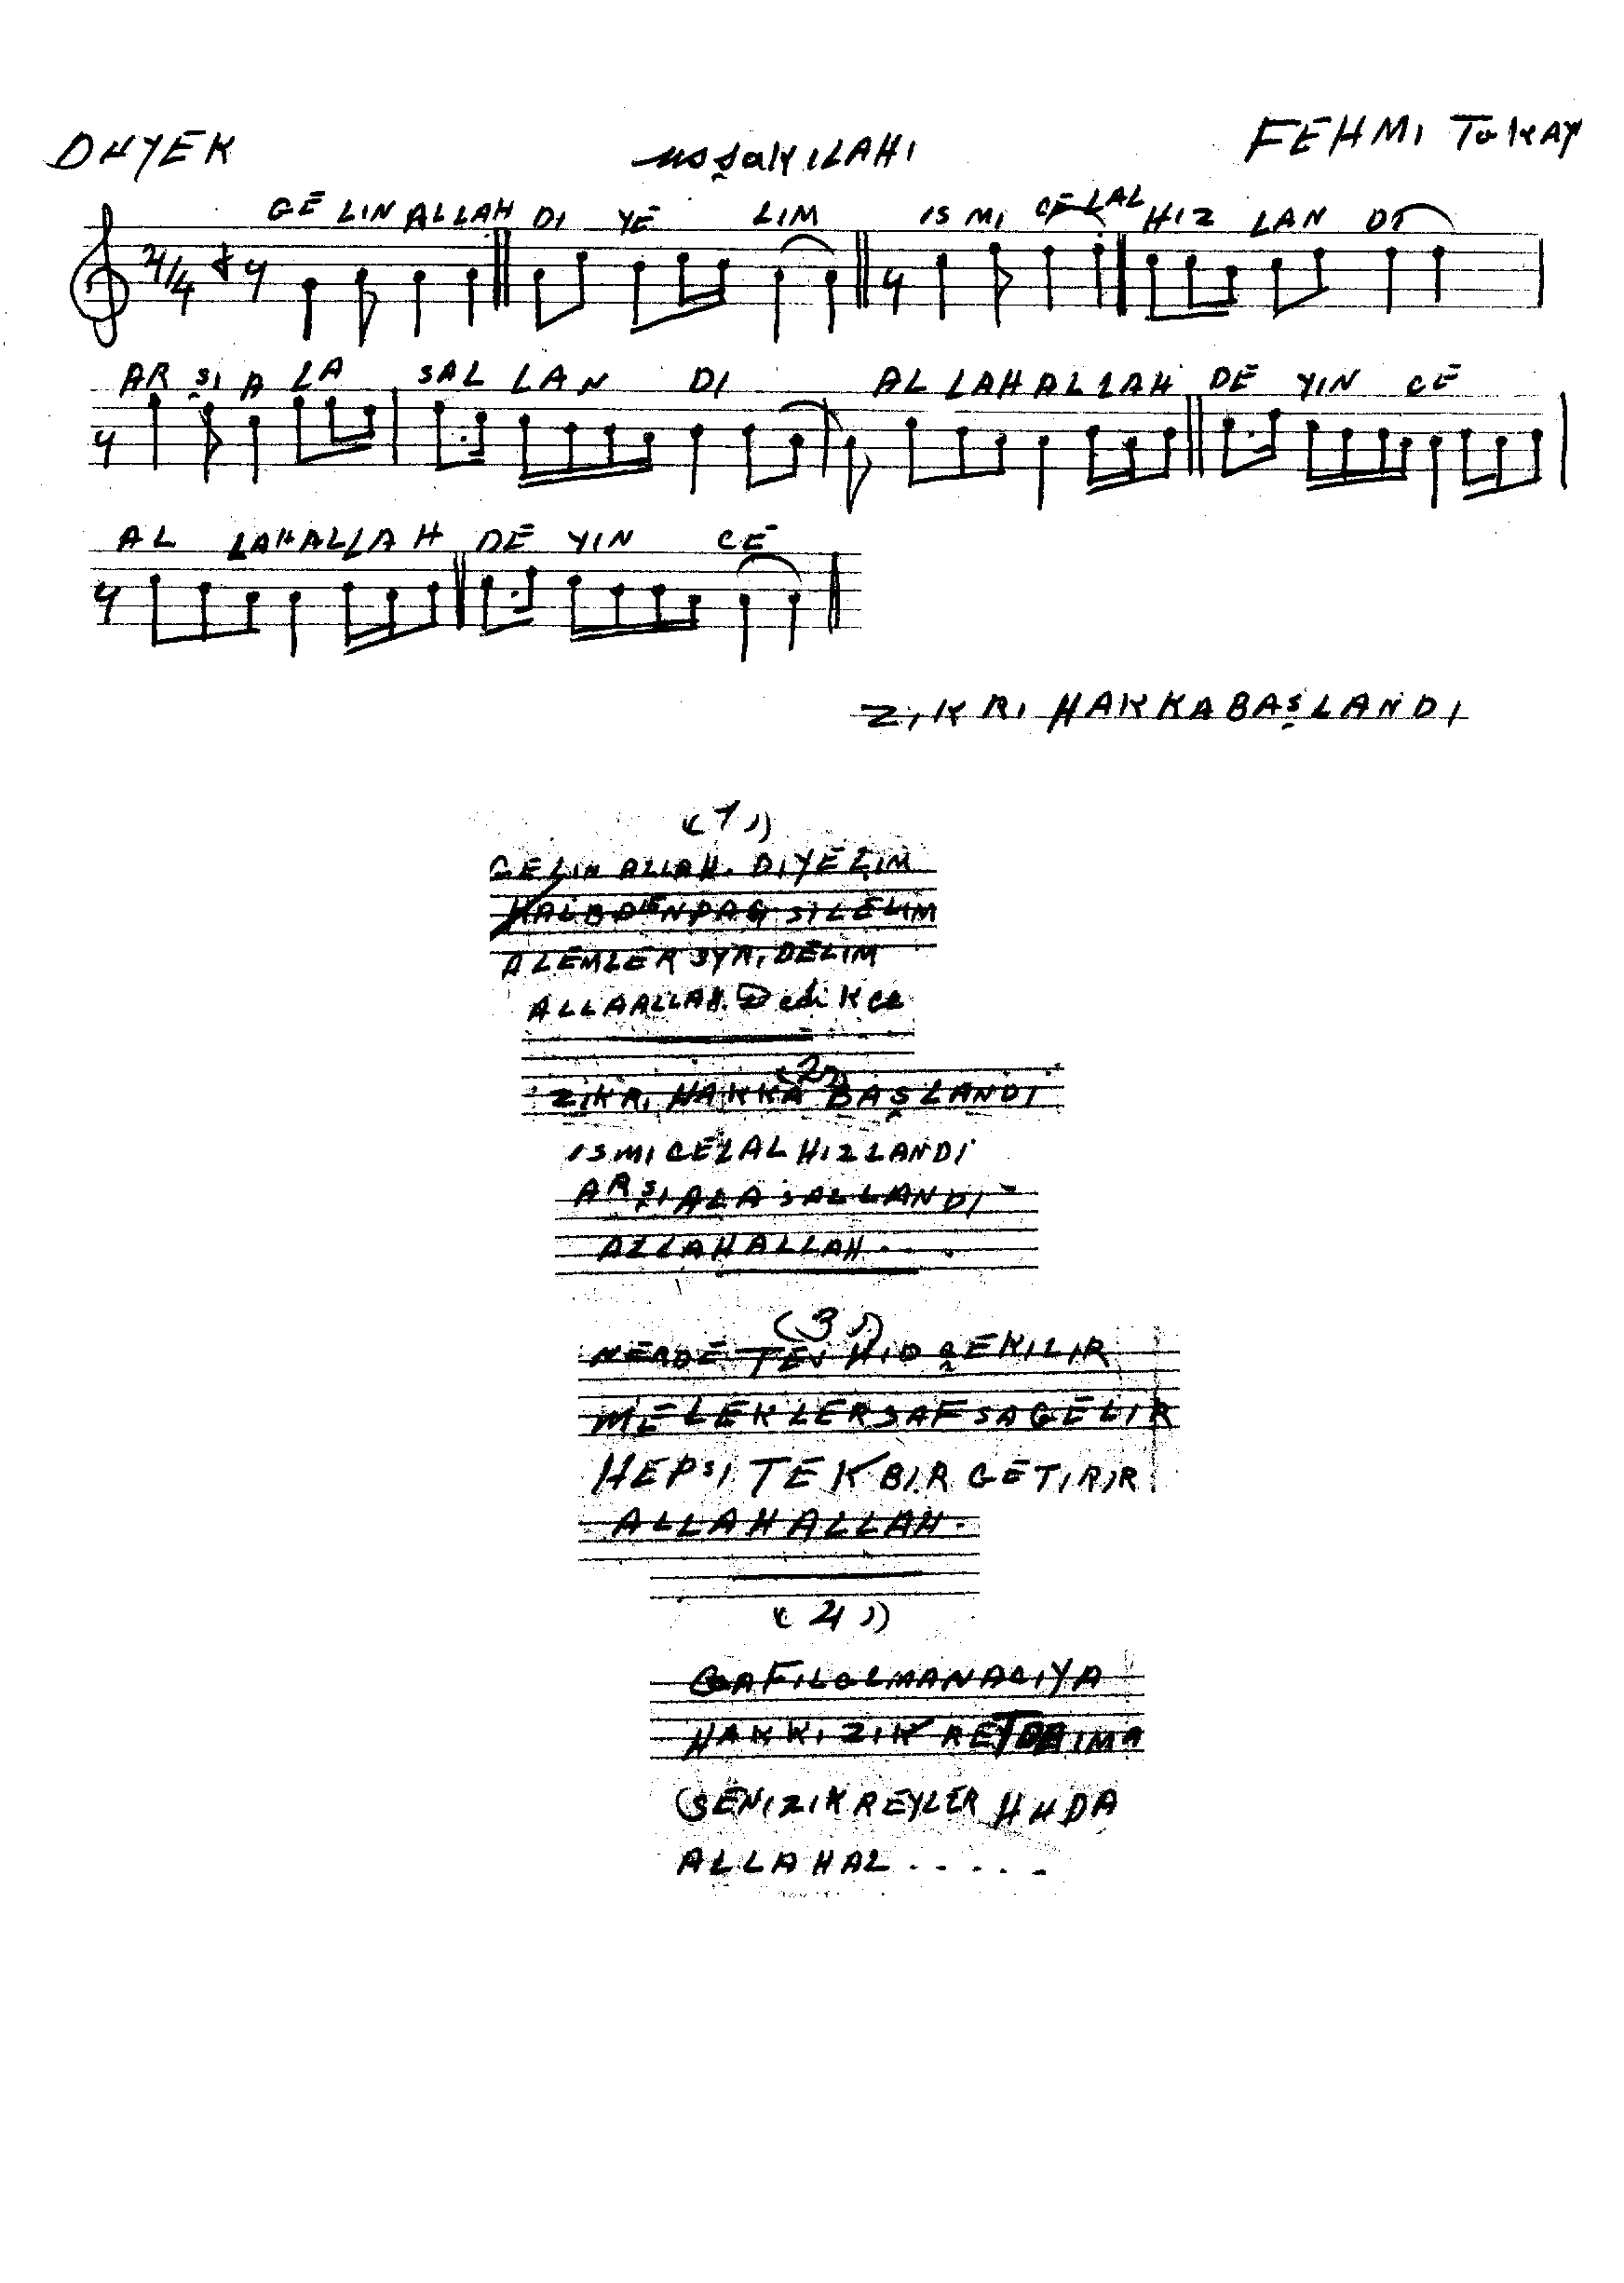 DUYEK
uşşak İLAHİ
FEHMİ TokAY
4/4
GE LİN ALLAH Dİ YE LİM İS Mİ CE LAL HIZ LAN DI
AR ŞI A LA SAL LAN DI AL LAH ALLAH DE YİN CE
AL LAH ALLAH DE YİN CE
ZİKRİ HAKKA BAŞLANDI
(1)
GELİN ALLAH. DİYELİM
KALBDEN PAS SİLELİM
ALEMLER SYRİDELİM
ALLAALLAH. Dedikce
(2)
ZİKRİ HAKKA BAŞLANDI
İSMİ CELAL HIZLANDI
ARŞI ALA SALLANDI
ALLAH ALLAH....
(3)
NERDE TEVHİD ÇEKİLİR
MELEKLER SAF SAGELİR
HEPSİ TEKBİR GETİRİR
ALLAH ALLAH.
(4)
GAFİL OLMA NACİYA
HAKKI ZİKREYT DAİMA
SENİ ZİKREYLER HUDA
ALLAH AL.....